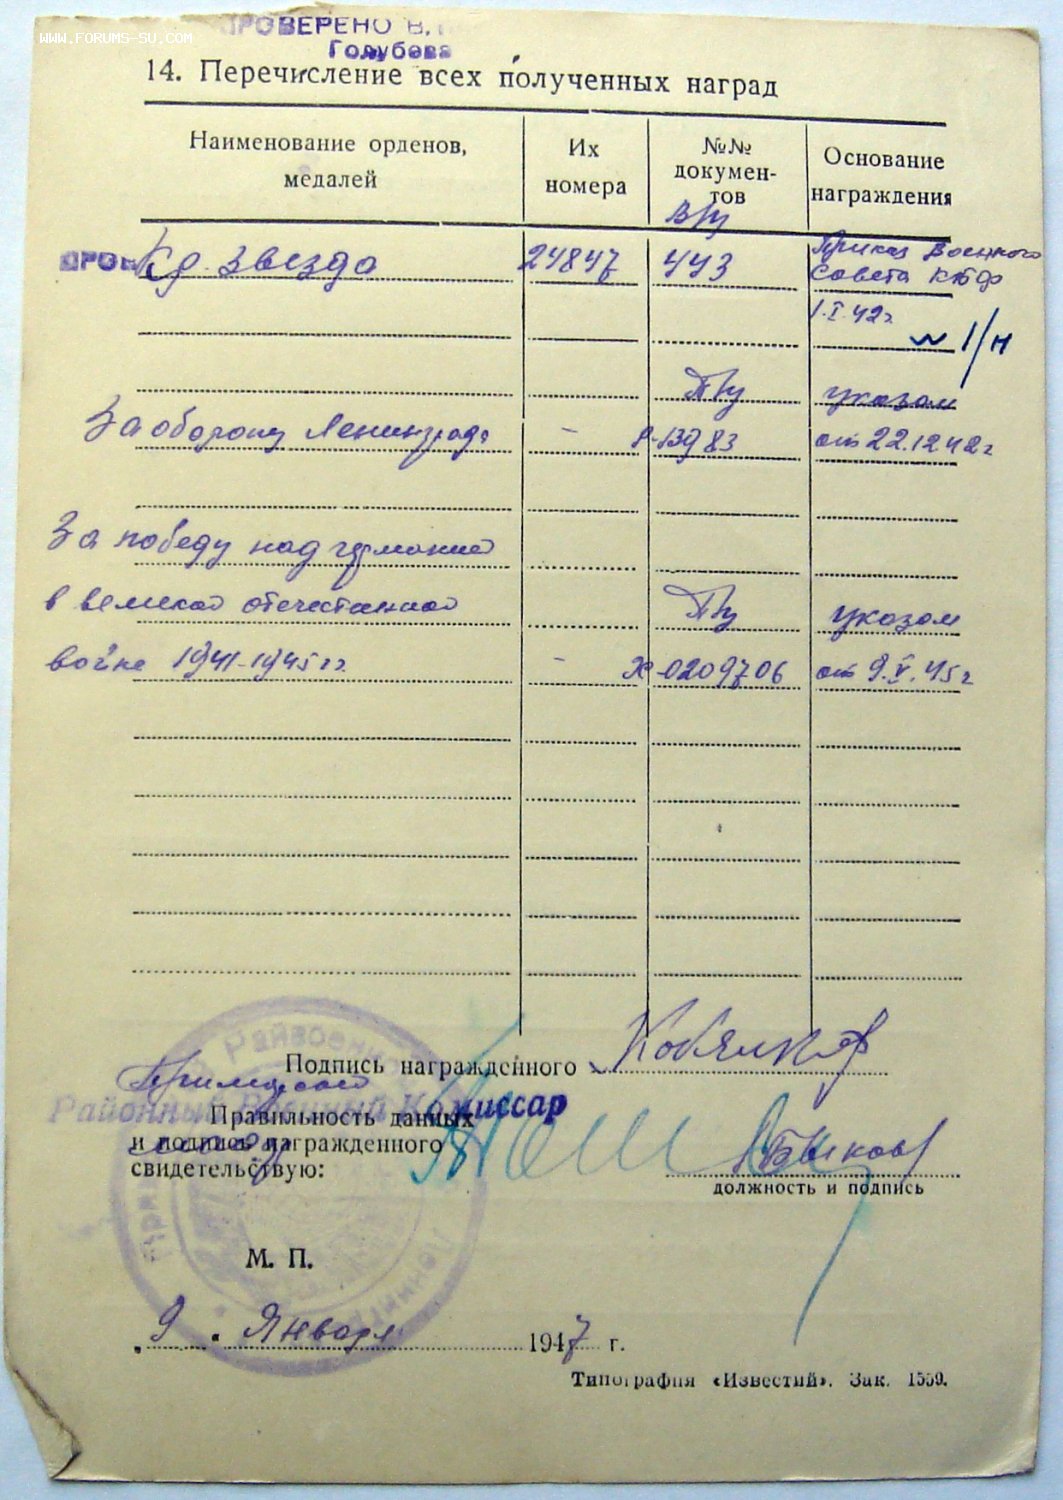 WWW.FORUMS-SU.COM
ПРОВЕРЕНО В.
Голубева
14. Перечисление всех полученных наград
Наименование орденов, медалей
Их номера
№№ документов
Основание награждения
В/у
Кр. Звезда 24847 443 Приказ Военного
Совета КБФ
1.I.42г
N 1/н
ПВу указом
За оборону Ленинграда - 13983 от 22.12.42г
За победу над германией
в великой отечественной ПВу указом
войне 1941-1945 гг. - 0209706 от 9.V.45г
Подпись награжденного
Приморский
Районный Военный Комиссар
Правильность данных
и подпись награжденного
свидетельствую:
Быков
должность и подпись
М. П.
9 . Января 1947 г.
Типография «Известий». Зак. 1559.